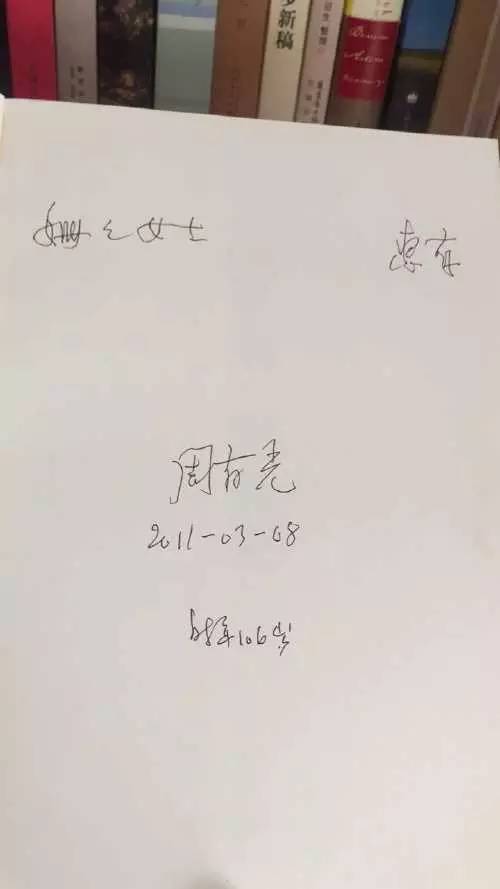 新稿
姗之女士 惠存
周有光
2011-03-08
时年106岁